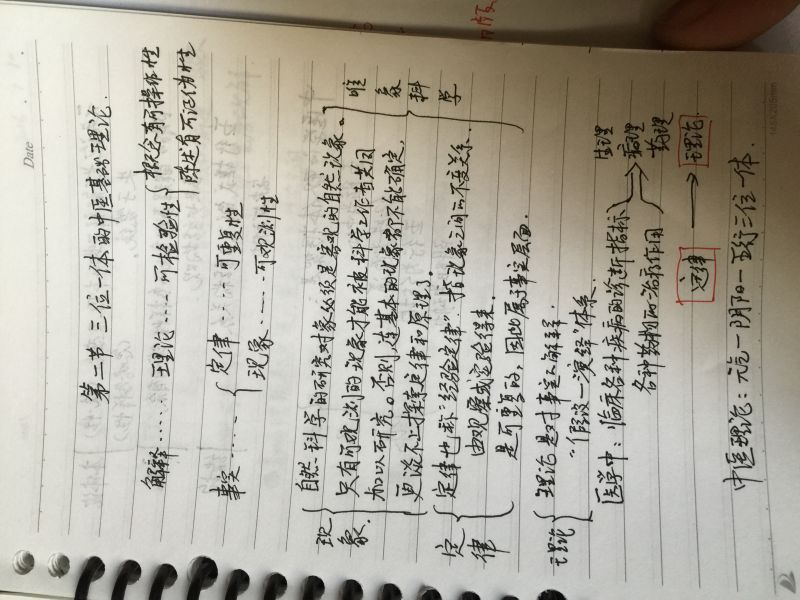 Date
第二节 三位一体的中医基础理论.
解释……理论……可检验性{概念有可操作性
陈述有可证伪性
事实……{定律……可重复性
现象……可观测性
现象
自然科学的研究对象必须是客观的自然现象。
只有可观测的现象才能被科学工作者关因
加以研究。否则,连基本的现象都不能确定,
更谈不上探索定律和原理了。
唯象科学
定律
定律也称"经验定律",指现象之间的不变关系.
由观察或实验得来.
是可重复的,因此属于事实层面.
理论
理论是对事实的解释.
"假设—演绎"体系.
医学中:临床各种疾病的诊断指标
各种药物的治疗作用
生理
病理
药理
定律 → 理论
中医理论:元气—阴阳—五行三位一体.
2